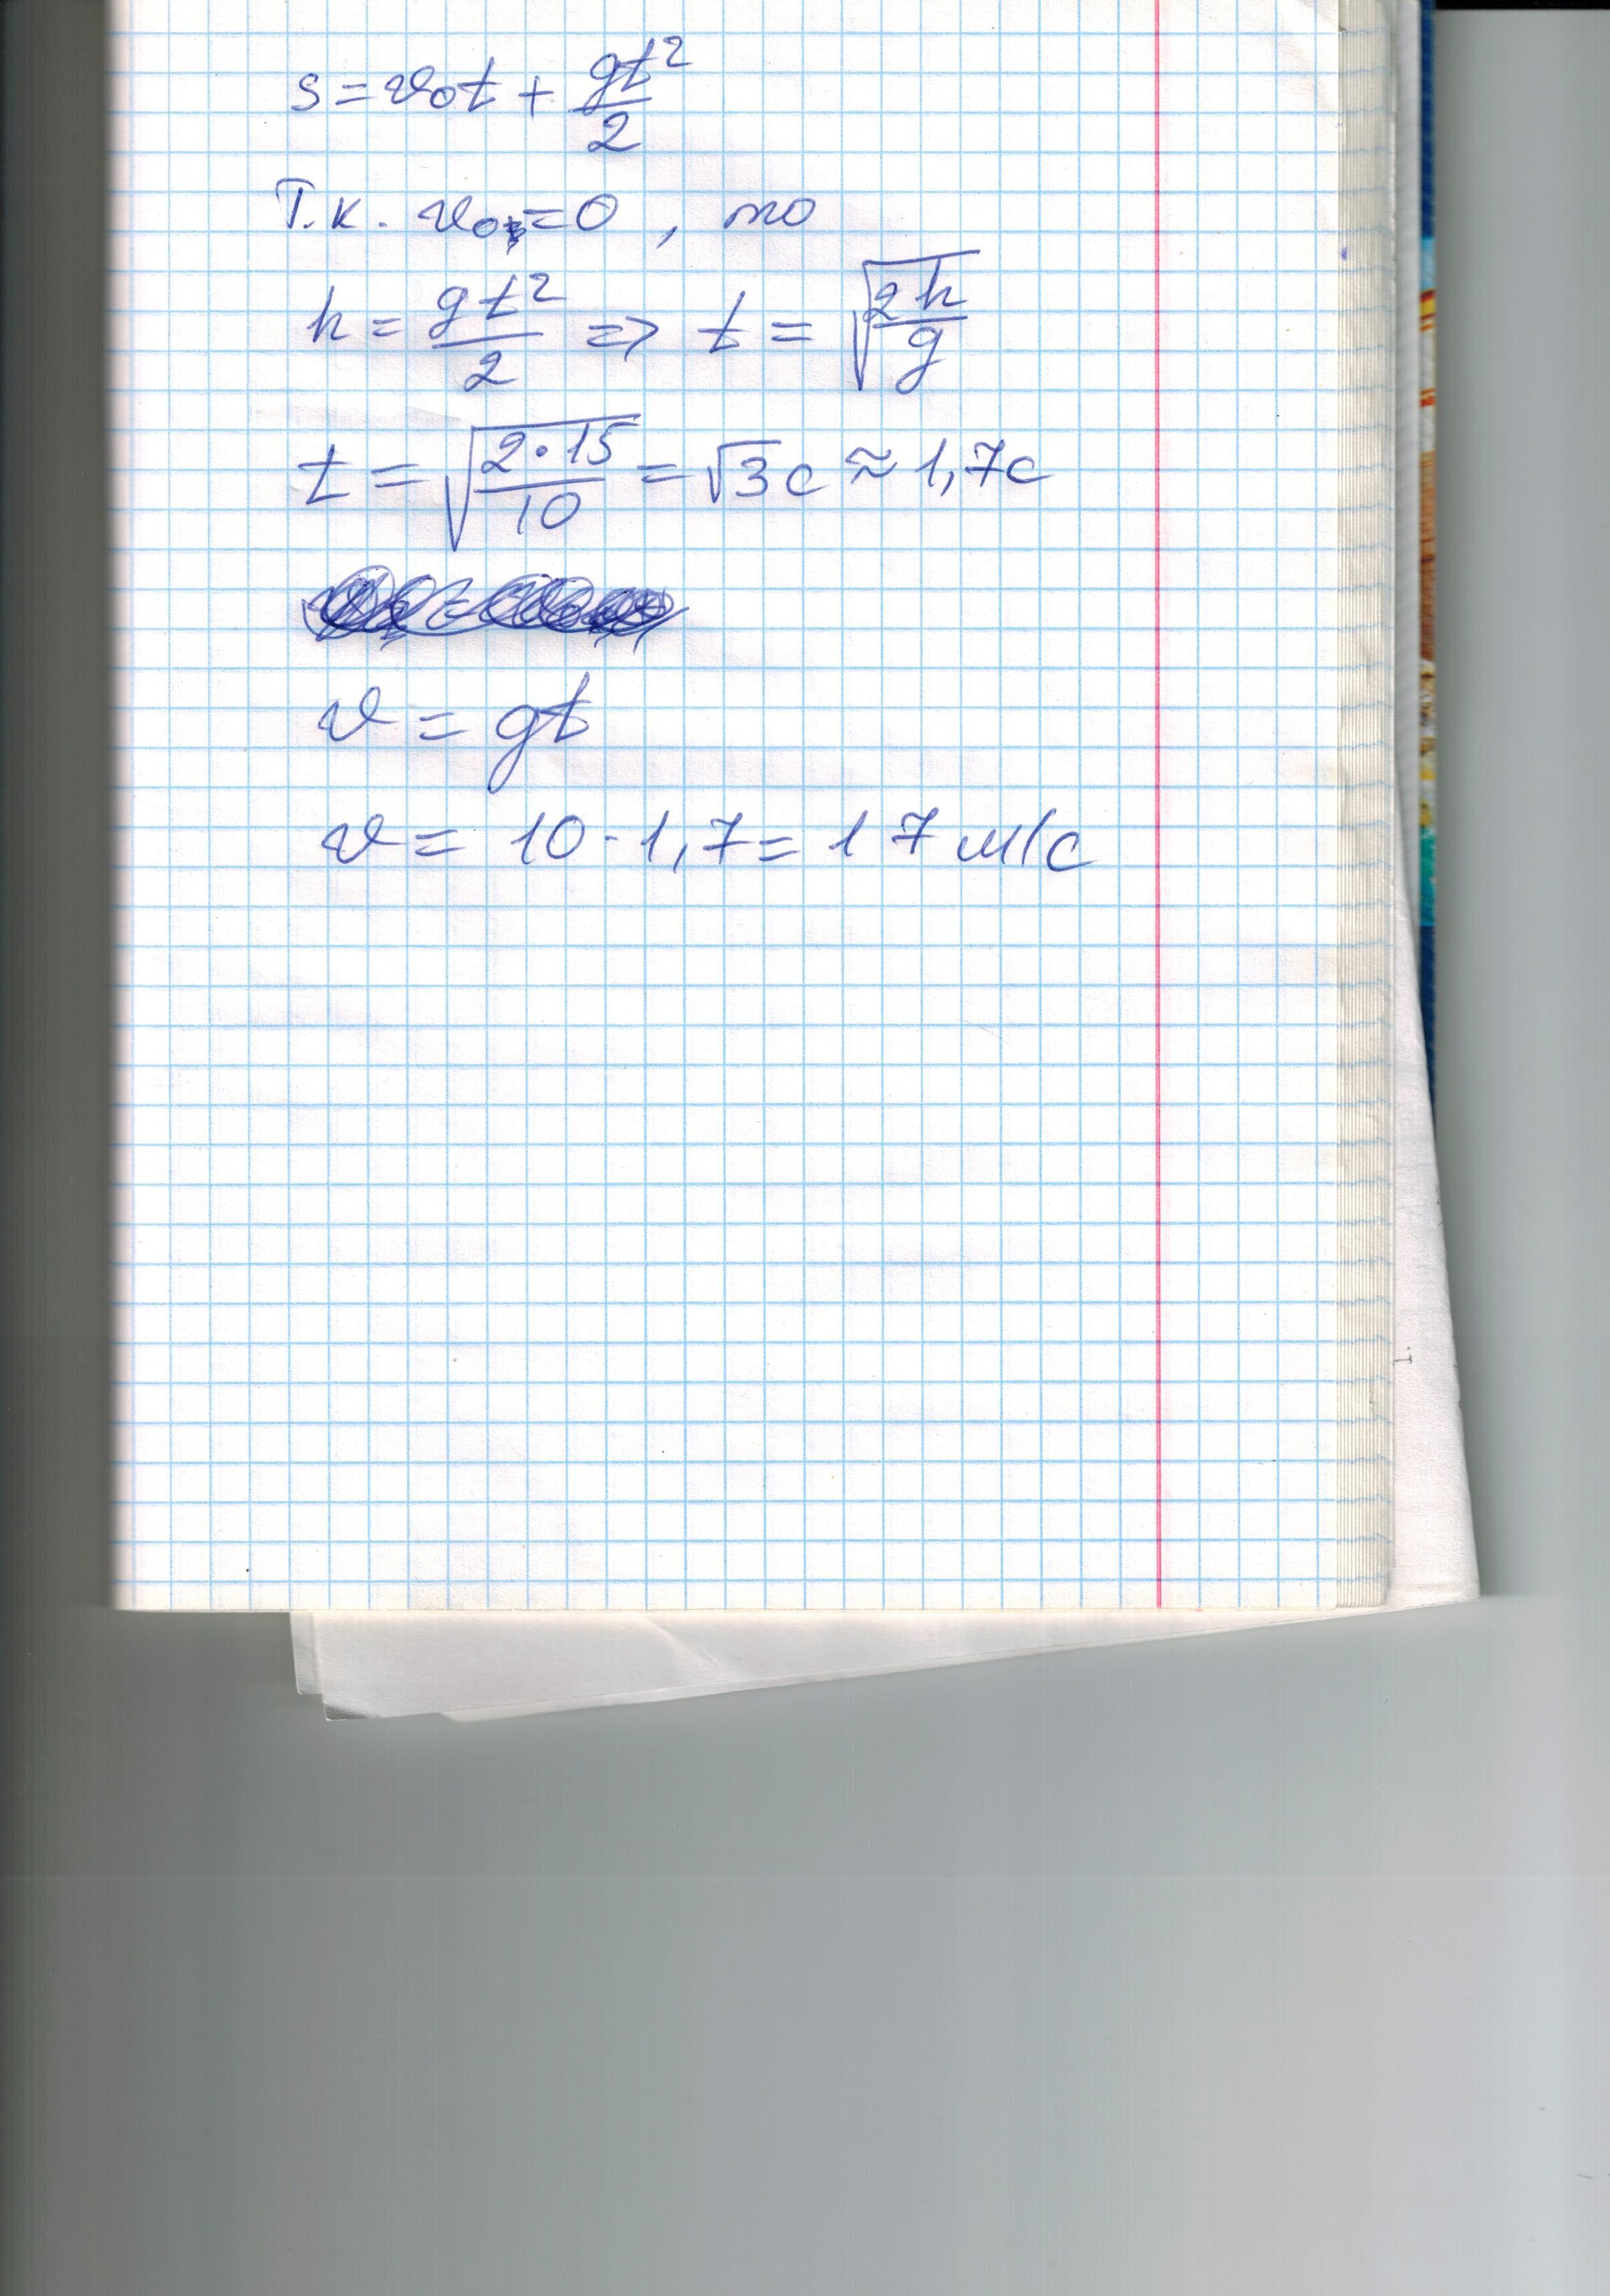 s = v₀t + gt²/2
Т.к. v₀ = 0, то
h = gt²/2 => t = √(2h/g)
t = √(2·15/10) = √3 с ≈ 1,7 с
v = gt
v = 10 · 1,7 = 17 м/с